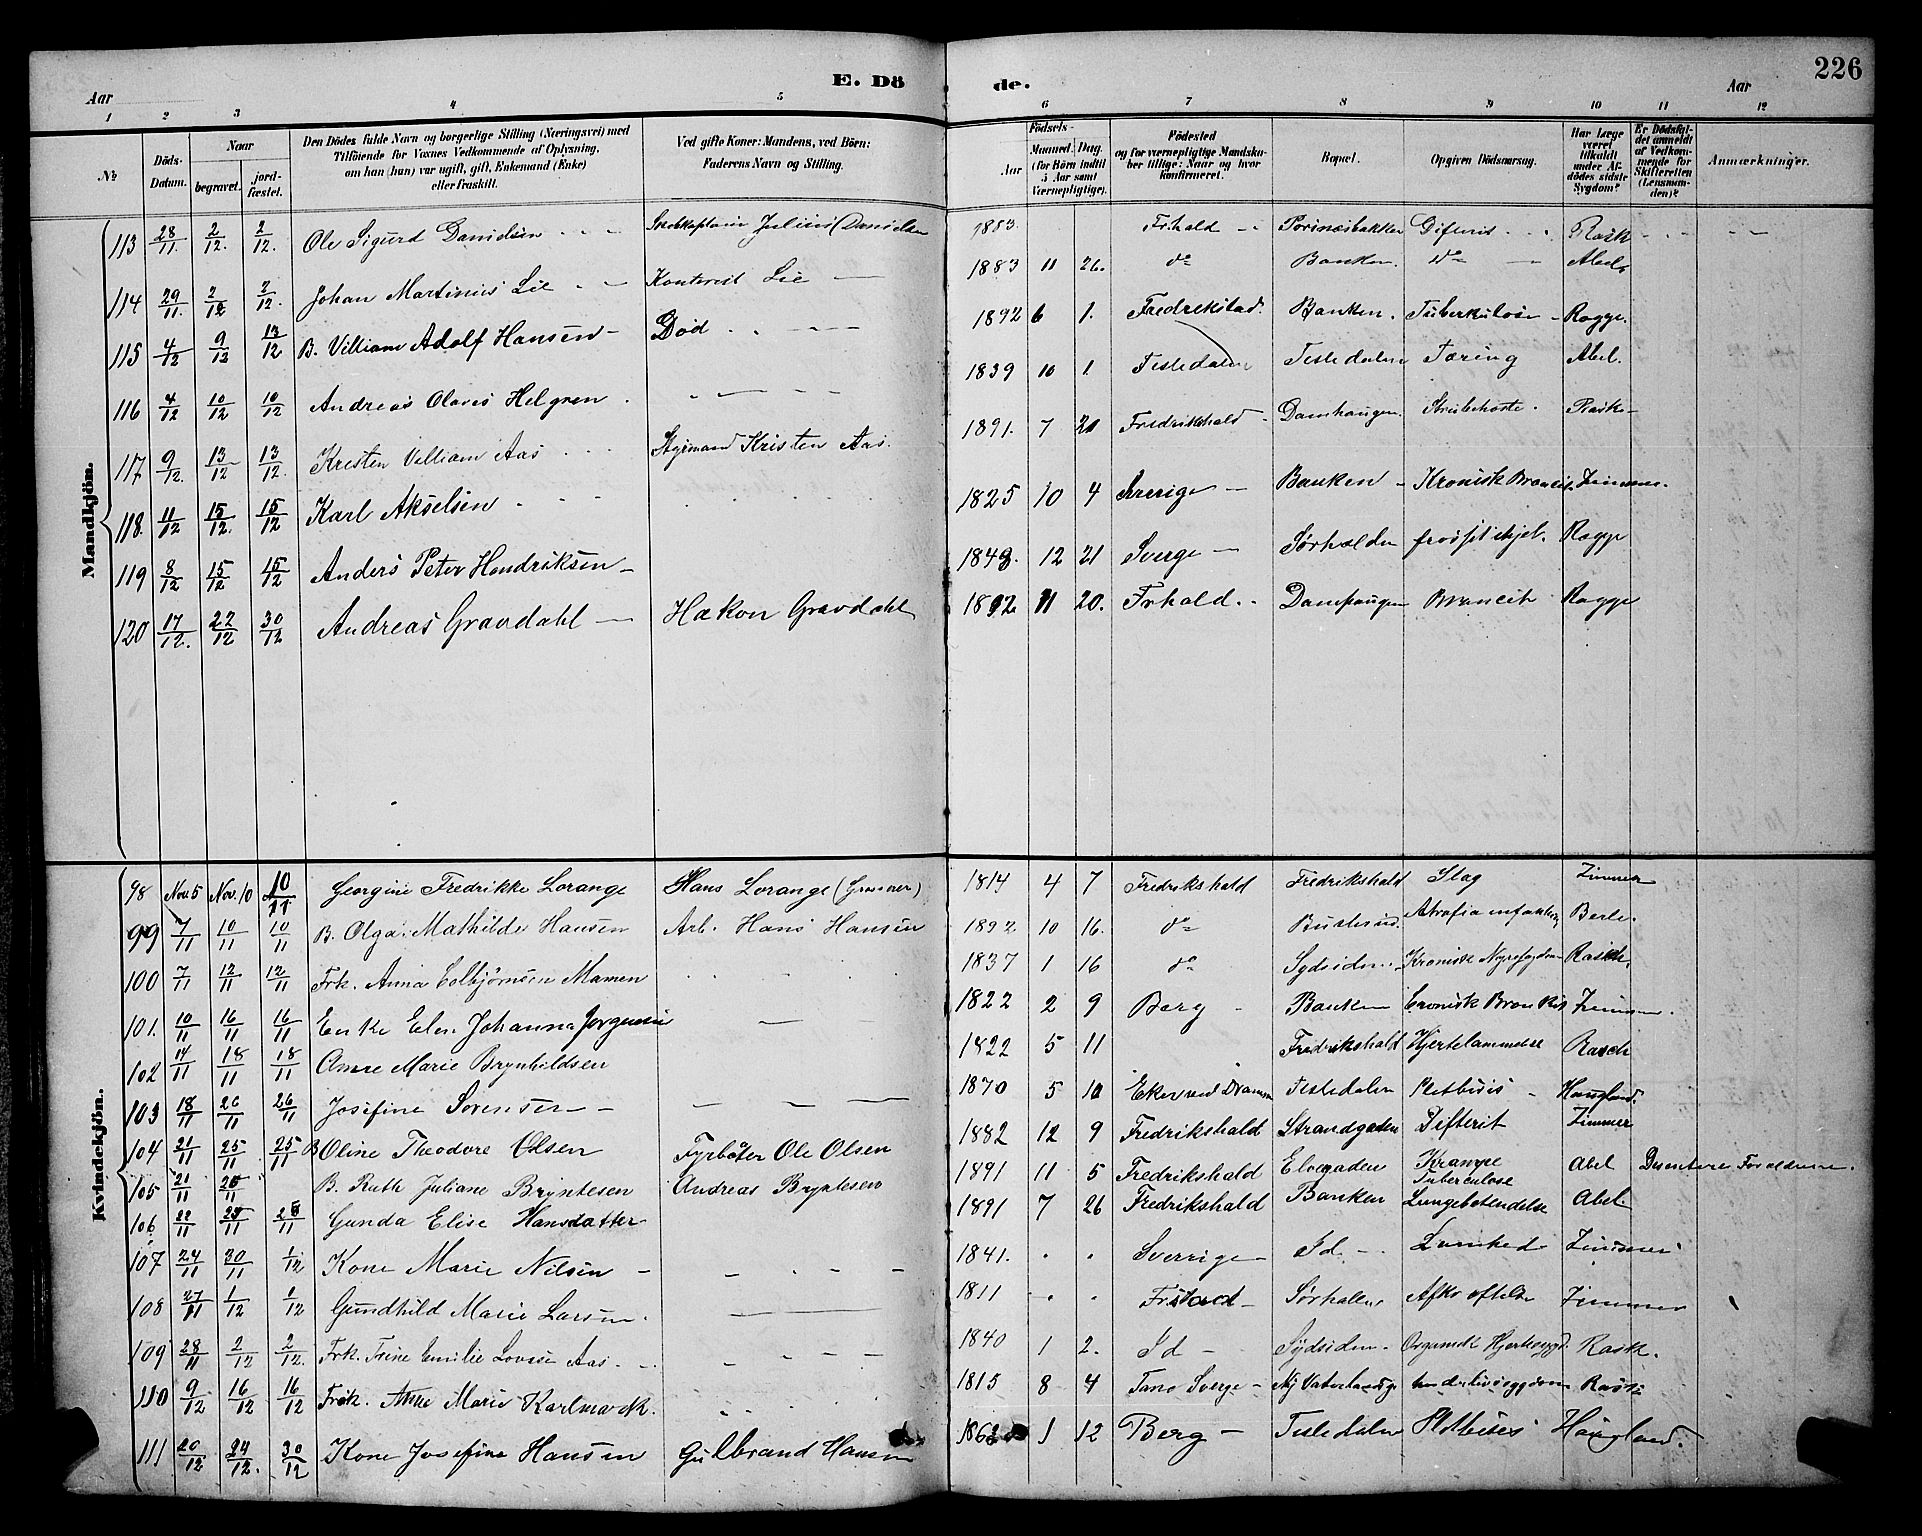 E. Dö de. 226
Aar Aar
1 2 3 4 5 6 7 8 9 10 11 12
No
Döds-Datum.
Naar begravet. jord-fæstet.
Den Dödes fulde Navn og borgerlige Stilling (Næringsvei) med Tilföiende for Voxnes Vedkommende af Oplysning, om han (hun) var ugift, gift, Enkemand (Enke) eller fraskilt.
Ved gifte Koner: Mandens, ved Börn: Faderens Navn og Stilling.
Födsels- Aar Maaned. Dag. (for Börn indtil 5 Aar samt Værnepligtige).
Födested og for værnepligtige Mandskaber tillige: Naar og hvor konfirmeret.
Bopæl.
Opgiven Dödsaarsag.
Har Læge været tilkaldt under Afdödes sidste Sygdom?
Er Dödsfaldet anmeldt af Vedkommende for Skifteretten (Lensmanden)?
Anmærkninger.
Mandkjön.
113 28/11. 2/12. 2/12. Ole Sigurd Danielsen Julius Danielsen 1883. Frhald Difterit Rask
114 29/11. 2/12 2/12. Johan Martinius Lie Lie 1883 11 26. do Banken. do Abel
115 4/12 9/12 13/12 B. Villiam Adolf Hansen Död 1892 6 1. Fredrikstad. Banken. Tuberkulose Rogge.
116 4/12 10/12 10/12 Andreas Olaves Helgren 1839 10 1. Tistedalen Tistedalen Tæring Abel.
117 9/12. 13/12 13/12. Kristen Villiam Aas Styrmand Kristen Aas. 1891. 7 20 Fredrikshald Damhaugen. Strubehoste. Rask
118. 11/12 15/12. 15/12 Karl Akselsen 1825 10 4 Sverige Banken Kronisk Broncit Zimmer.
119 8/12 15/12 15/12 Anders Peter Hendriksen 1848. 12 21 Sverge Sørhalden Rogge
120 17/12. 22/12 30/12 Andreas Gravdahl Hakon Gravdahl 1892 11 20. Frhald. Damhaugen Broncit Rogge
Kvindekjön.
98 Nov. 5 Nov. 10 10/11 Georgine Fredrikke Lorange Hans Lorange 1814 4 7 Fredrikshald Fredrikshald Slag Zimmer
99 7/11 10/11 10/11 B. Olga Mathilde Hansen Arb. Hans Hansen 1892 10 16. do Atrofia infantum
100 7/11 12/11 12/11 Frk. Anna Mamen 1837 1 16 do Sydsiden. Kronisk Rasch.
101. 10/11 16/11 16/11 Enke Johanna Jørgensen 1822 2 9 Berg Banken Cronisk Bronkit Zimmer.
102 14/11 18/11 18/11 Anne Marie Brynhildsen 1822 5 11 Fredrikshald Hjertelammelse Rasch
103 18/11 26/11 26/11 Josefine Sørensen 1870 5 10 Eker ved Drammen Tistedalen Haugland.
104 21/11 25/11 25/11 B Oline Theodore Olsen Fyrbøter Ole Olsen 1882 12 9 Fredrikshald Strandgaden Difterit Zimmer
105 21/11 25/11 B. Ruth Juliane Bryntesen Andreas Bryntesen 1891 11 5 Fredrikshald Elvegaden Krampe Tuberculose Abel
106 22/11 25/11 Gunda Elise Hansdatter 1891 7 26 Fredrikshald Banken Lungebetendelse Abel
107 24/11 30/11 1/12 Kone Marie Nilsen 1841. Sverrige Id Zimmer
108 27/11 1/12 1/12 Gundhild Marie Larsen. 1811 Zimmer
109 28/11 2/12 2/12. Frk. Trine Emilie Aas 1840 1 2. Id Sydsiden Organisk Rask.
110 9/12 16/12 16/12 Frøk. Anne Marie Karlmark. 1815 8 4 Tano Sverge Rask
111 20/12 24/12. 30/12 Kone Josefine Hansen Gulbrand Hansen 1 12 Berg Tistedalen Haugland.